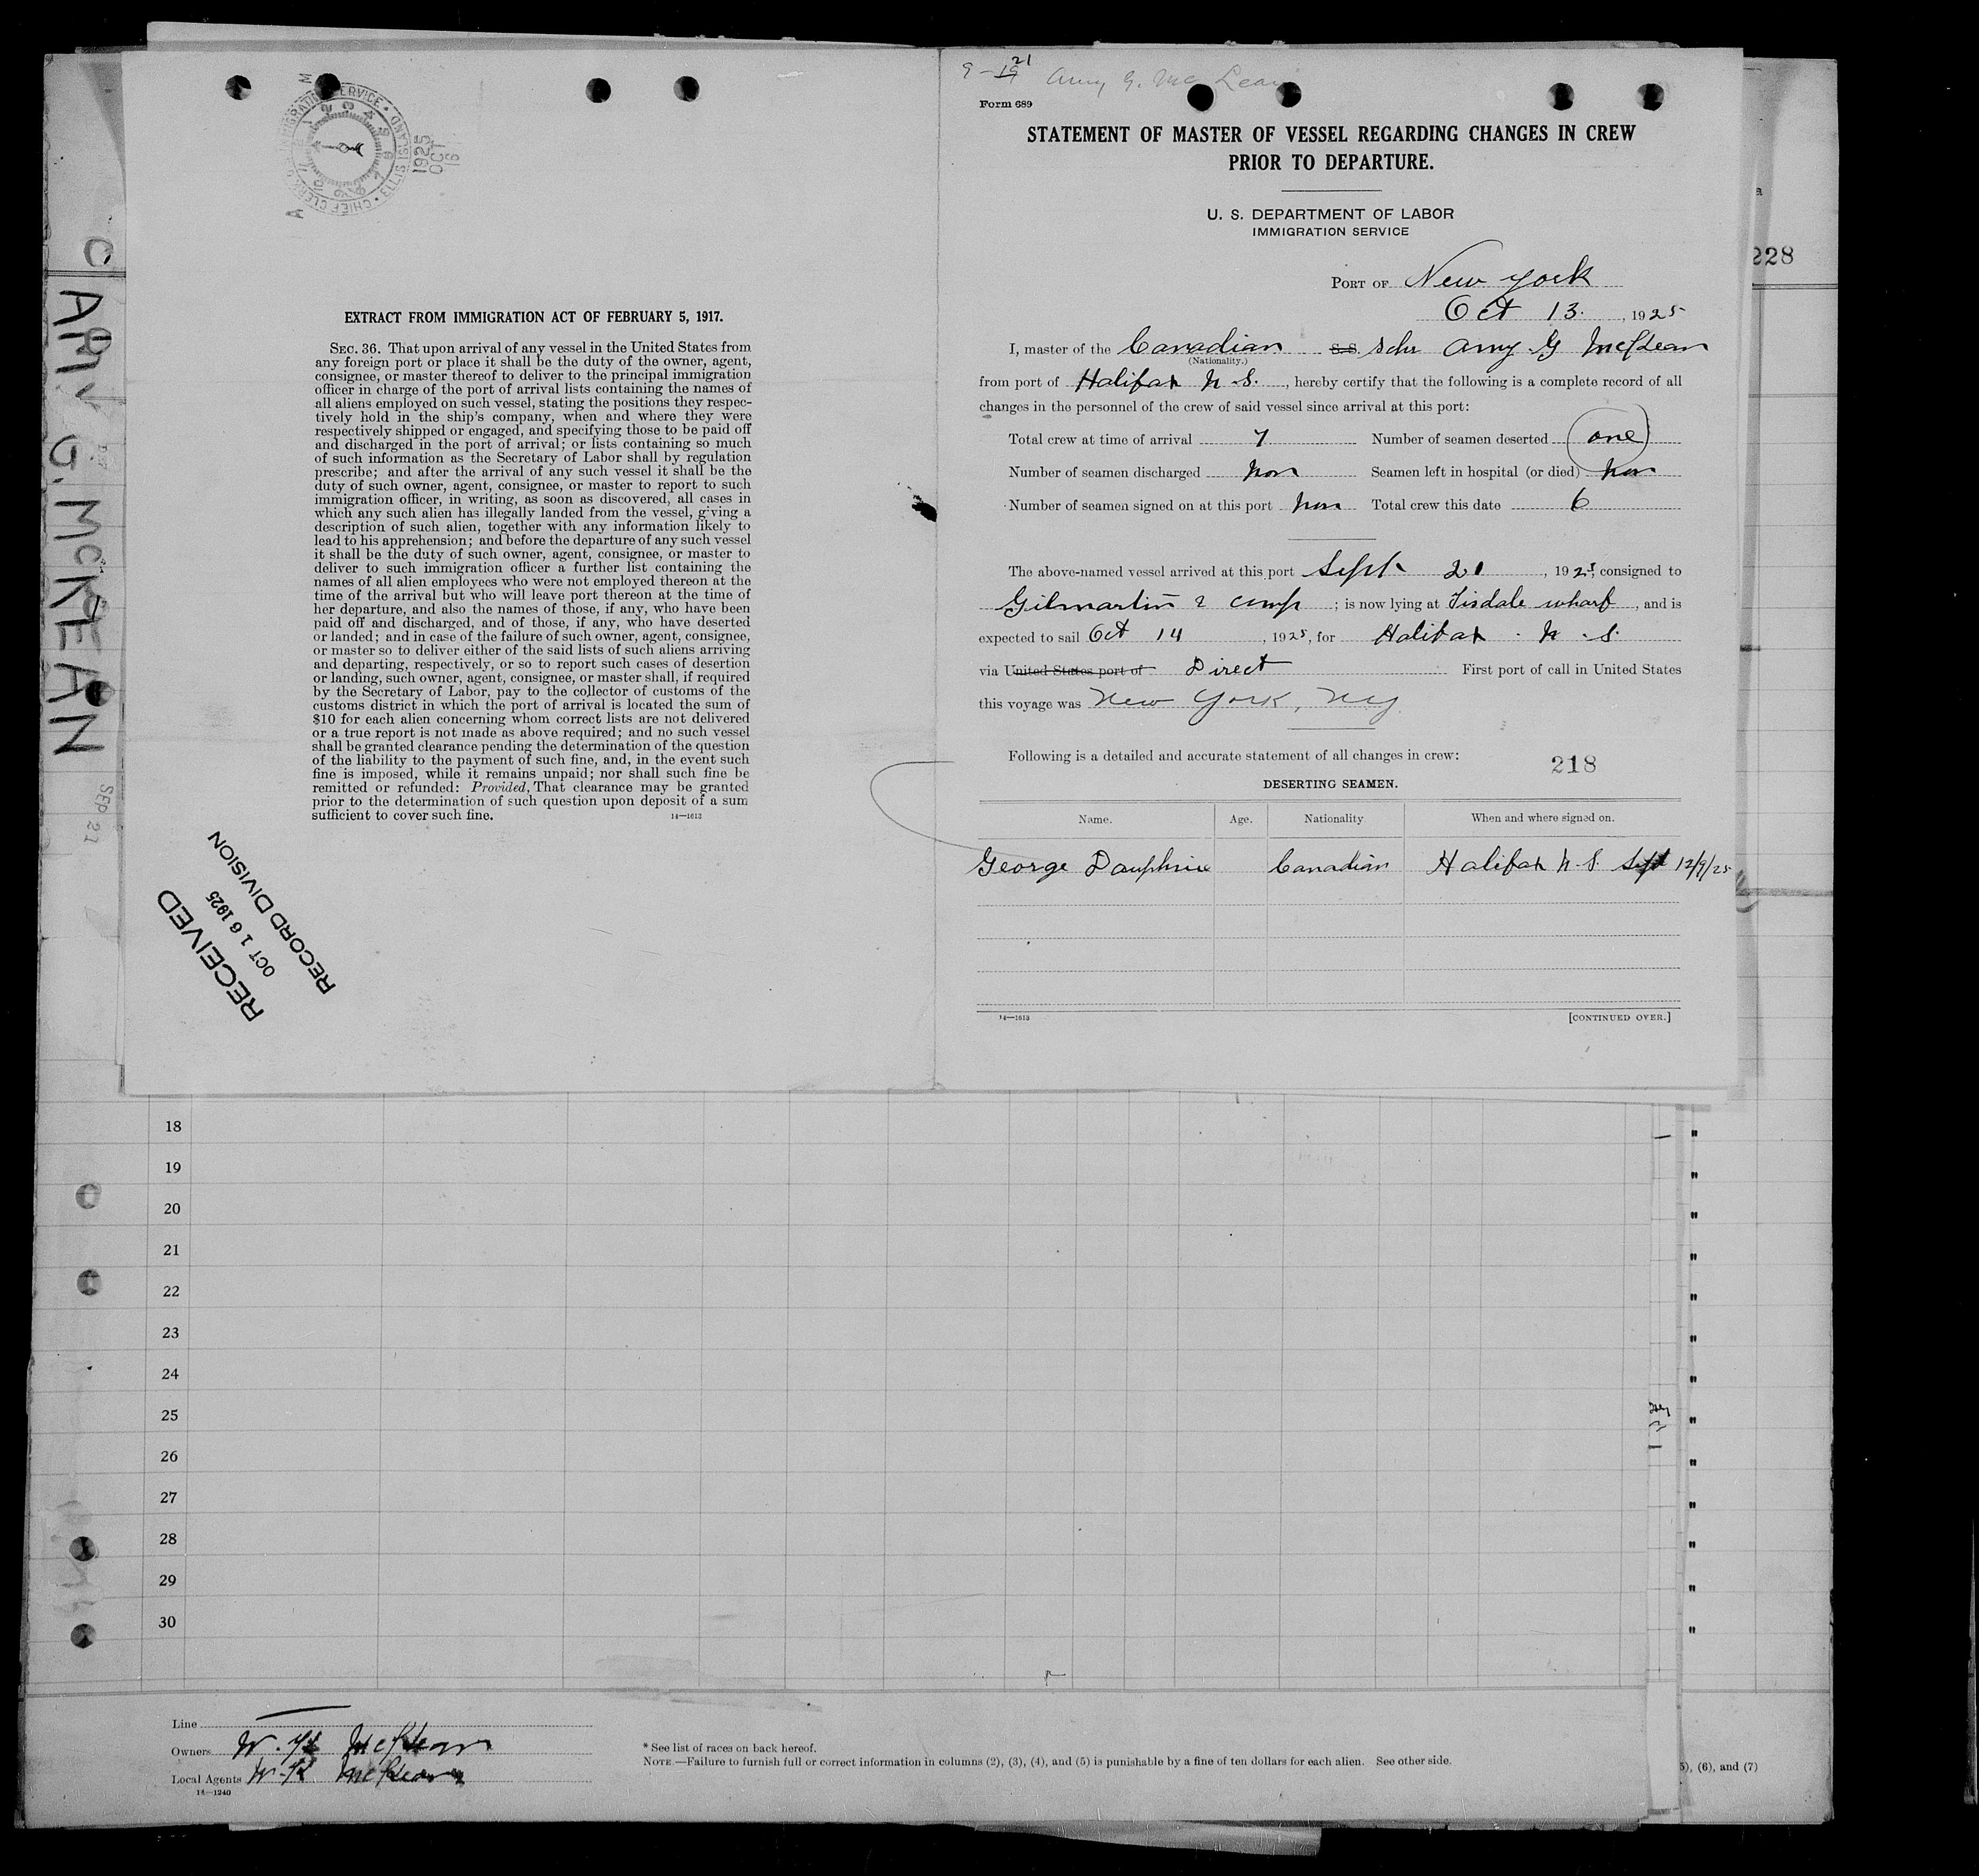 IMMIGRATION SERVICE
CHIEF CLERK
ELLIS ISLAND
1925
OCT
16
EXTRACT FROM IMMIGRATION ACT OF FEBRUARY 5, 1917.
SEC. 36. That upon arrival of any vessel in the United States from
any foreign port or place it shall be the duty of the owner, agent,
consignee, or master thereof to deliver to the principal immigration
officer in charge of the port of arrival lists containing the names of
all aliens employed on such vessel, stating the positions they respec-
tively hold in the ship's company, when and where they were
respectively shipped or engaged, and specifying those to be paid off
and discharged in the port of arrival; or lists containing so much
of such information as the Secretary of Labor shall by regulation
prescribe; and after the arrival of any such vessel it shall be the
duty of such owner, agent, consignee, or master to report to such
immigration officer, in writing, as soon as discovered, all cases in
which any such alien has illegally landed from the vessel, giving a
description of such alien, together with any information likely to
lead to his apprehension; and before the departure of any such vessel
it shall be the duty of such owner, agent, consignee, or master to
deliver to such immigration officer a further list containing the
names of all alien employees who were not employed thereon at the
time of the arrival but who will leave port thereon at the time of
her departure, and also the names of those, if any, who have been
paid off and discharged, and of those, if any, who have deserted
or landed; and in case of the failure of such owner, agent, consignee,
or master so to deliver either of the said lists of such aliens arriving
and departing, respectively, or so to report such cases of desertion
or landing, such owner, agent, consignee, or master shall, if required
by the Secretary of Labor, pay to the collector of customs of the
customs district in which the port of arrival is located the sum of
$10 for each alien concerning whom correct lists are not delivered
or a true report is not made as above required; and no such vessel
shall be granted clearance pending the determination of the question
of the liability to the payment of such fine, and, in the event such
fine is imposed, while it remains unpaid; nor shall such fine be
remitted or refunded: Provided, That clearance may be granted
prior to the determination of such question upon deposit of a sum
sufficient to cover such fine.
14—1613
RECEIVED
OCT 16 1925
RECORD DIVISION
AMY G. MCKEAN
SEP 21
9-19 21 Amy G. McLean
Form 689
STATEMENT OF MASTER OF VESSEL REGARDING CHANGES IN CREW
PRIOR TO DEPARTURE.
U. S. DEPARTMENT OF LABOR
IMMIGRATION SERVICE
PORT OF New York
Oct 13. , 1925
I, master of the Canadian S.S. Schr Amy G McKean
(Nationality.)
from port of Halifax N.S. , hereby certify that the following is a complete record of all
changes in the personnel of the crew of said vessel since arrival at this port:
Total crew at time of arrival 7 Number of seamen deserted one
Number of seamen discharged non Seamen left in hospital (or died) non
Number of seamen signed on at this port non Total crew this date 6
The above-named vessel arrived at this port Sept 21 , 1925, consigned to
Gilmartin & comp ; is now lying at Tisdale wharf , and is
expected to sail Oct 14 , 1925, for Halifax . N. S.
via United States port of Direct First port of call in United States
this voyage was New York, NY
Following is a detailed and accurate statement of all changes in crew:
218
DESERTING SEAMEN.
Name. Age. Nationality When and where signed on.
George Dauphine Canadian Halifax N.S. Sept 12/9/25
14—1613 [CONTINUED OVER.]
228
18
19
20
21
22
23
24
25
26
27
28
29
30
Line
Owners W. H McKean
Local Agents W. H McKean
14—1240
* See list of races on back hereof.
NOTE.—Failure to furnish full or correct information in columns (2), (3), (4), and (5) is punishable by a fine of ten dollars for each alien. See other side.
5), (6), and (7)